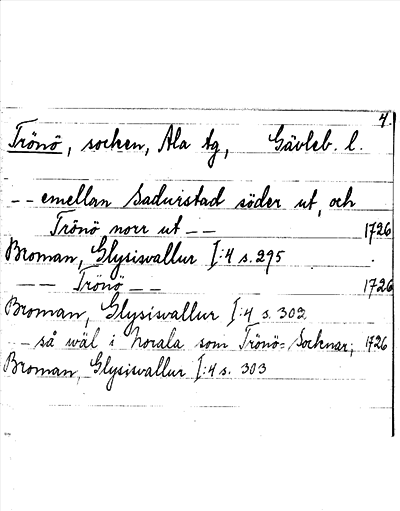 4.
Trönö, socken, Ala tg, Gävleb. l.
-- emellan Sadurstad söder ut, och
Trönö norr ut -- 1726
Broman, Glysisvallur I:4 s. 295
-- Trönö -- 1726
Broman, Glysisvallur I:4 s. 302
-- så wäl i Norala som Trönö= Socknar; 1726
Broman, Glysisvallur I:4 s. 303